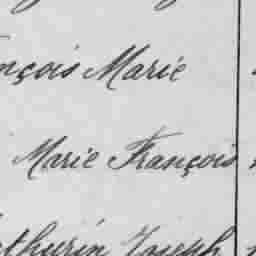 nçois Marie
Marie François
athurin Joseph